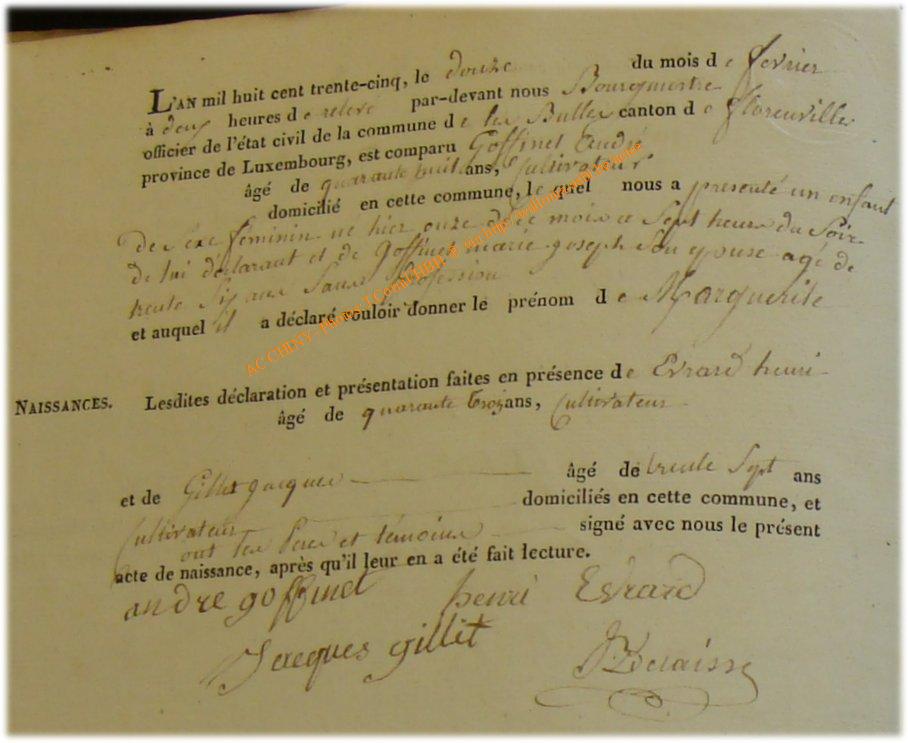 L'AN mil huit cent trente-cinq, le douze du mois de fevrier
à deux heures de relevé par-devant nous Bourgmestre
officier de l'état civil de la commune de les Bulles canton de florenville
province de Luxembourg, est comparu Goffinet André
âgé de quarante huit ans, Cultivateur
domicilié en cette commune, le quel nous a presenté un enfant
de Sexe feminin né hier onze de ce mois a Sept heures du Soir
de lui déclarant et de Goffinet marie joseph Son epouse agé de
trente Six ans Sans Profession
et auquel il a déclaré vouloir donner le prénom de Marguerite
NAISSANCES. Lesdites déclaration et présentation faites en présence de Evrard henri
âgé de quarante trois ans, Cultivateur
et de Gillet jacques âgé de trente Sept ans
Cultivateur domiciliés en cette commune, et
ont les Peres et témoins signé avec nous le présent
acte de naissance, après qu'il leur en a été fait lecture.
andre goffinet henri Evrard
Jacques gillet
AC CHINY - photos J Cornet